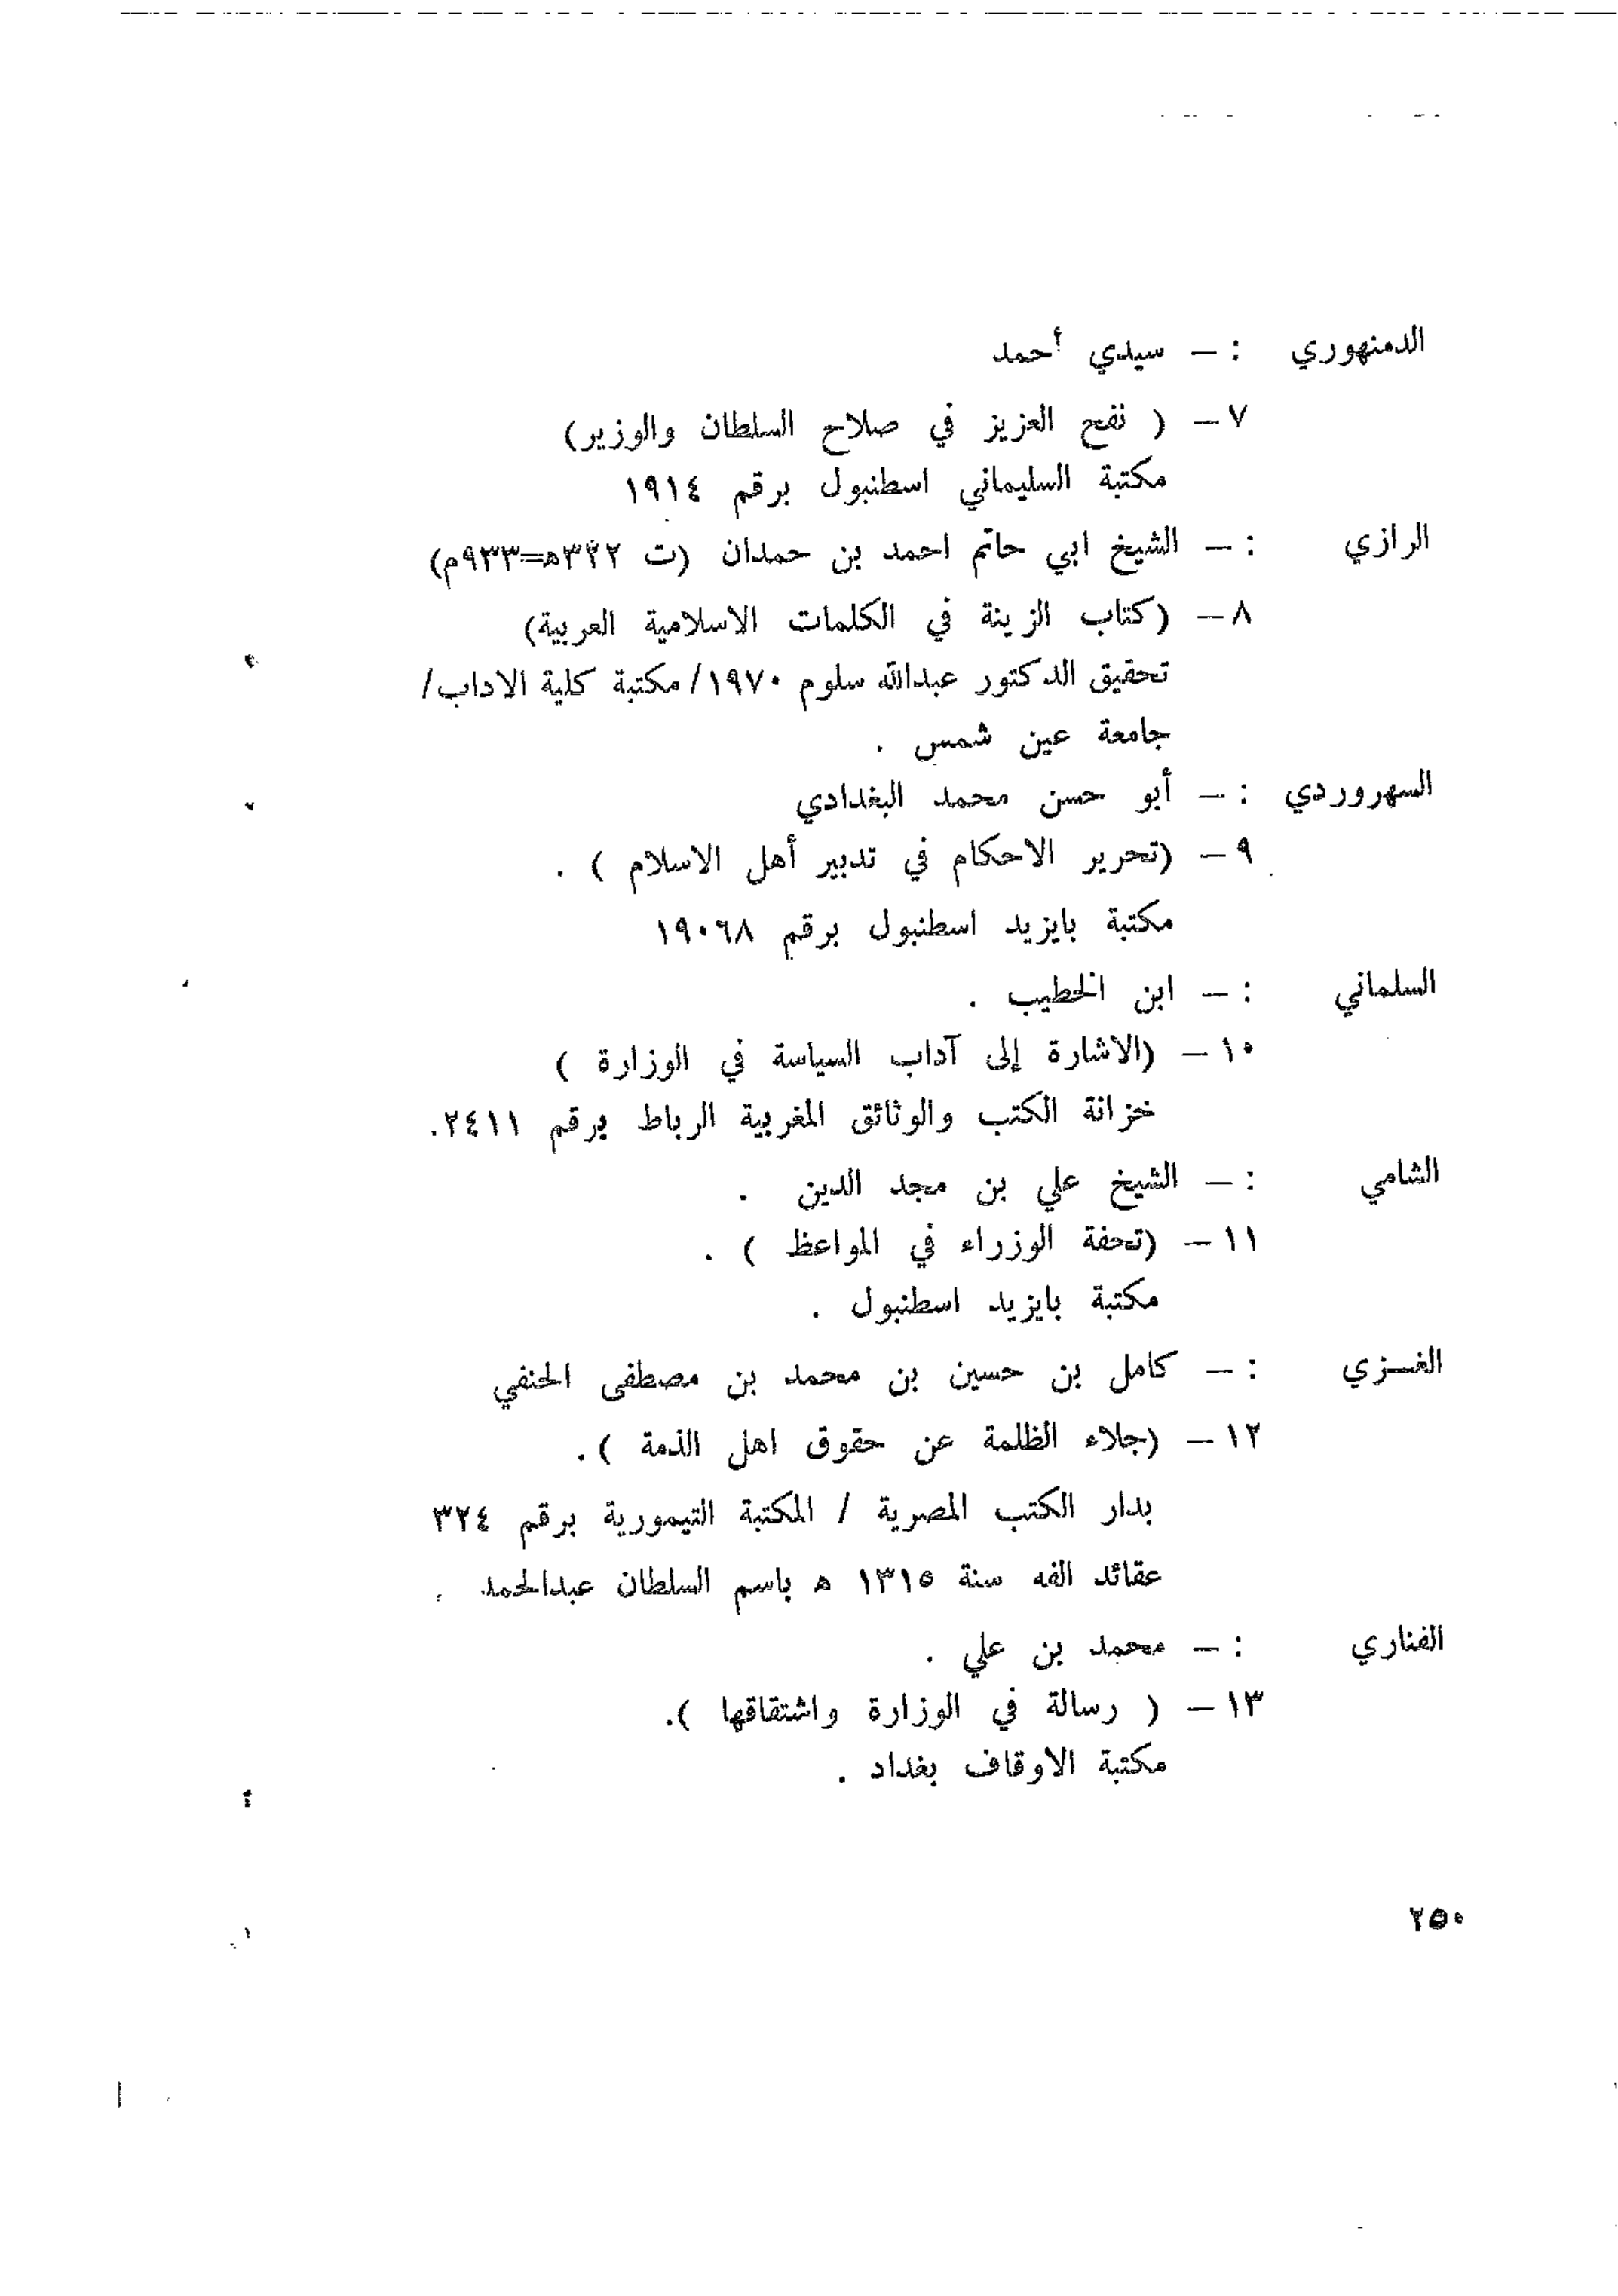 الدمنهوري : – سيدي أحمد
٧ – ( نفح العزيز في صلاح السلطان والوزير)
مكتبة السليماني اسطنبول برقم ١٩١٤
الرازي : – الشيخ ابي حاتم احمد بن حمدان (ت ٣٢٢هـ=٩٣٣م)
٨ – (كتاب الزينة في الكلمات الاسلامية العربية)
تحقيق الدكتور عبدالله سلوم ١٩٧٠/ مكتبة كلية الاداب/
جامعة عين شمس .
السهروردي : – أبو حسن محمد البغدادي
٩ – (تحرير الاحكام في تدبير أهل الاسلام ) .
مكتبة بايزيد اسطنبول برقم ١٩٠٦٨
السلماني : – ابن الخطيب .
١٠ – (الاشارة إلى آداب السياسة في الوزارة )
خزانة الكتب والوثائق المغربية الرباط برقم ٢٤١١.
الشامي : – الشيخ علي بن مجد الدين .
١١ – (تحفة الوزراء في المواعظ ) .
مكتبة بايزيد اسطنبول .
الغـزي : – كامل بن حسين بن محمد بن مصطفى الحنفي
١٢ – (جلاء الظلمة عن حقوق اهل الذمة ) .
بدار الكتب المصرية / المكتبة التيمورية برقم ٣٢٤
عقائد الفه سنة ١٣١٥ هـ باسم السلطان عبدالحمد .
الفناري : – محمد بن علي .
١٣ – ( رسالة في الوزارة واشتقاقها ).
مكتبة الاوقاف بغداد .
٢٥٠